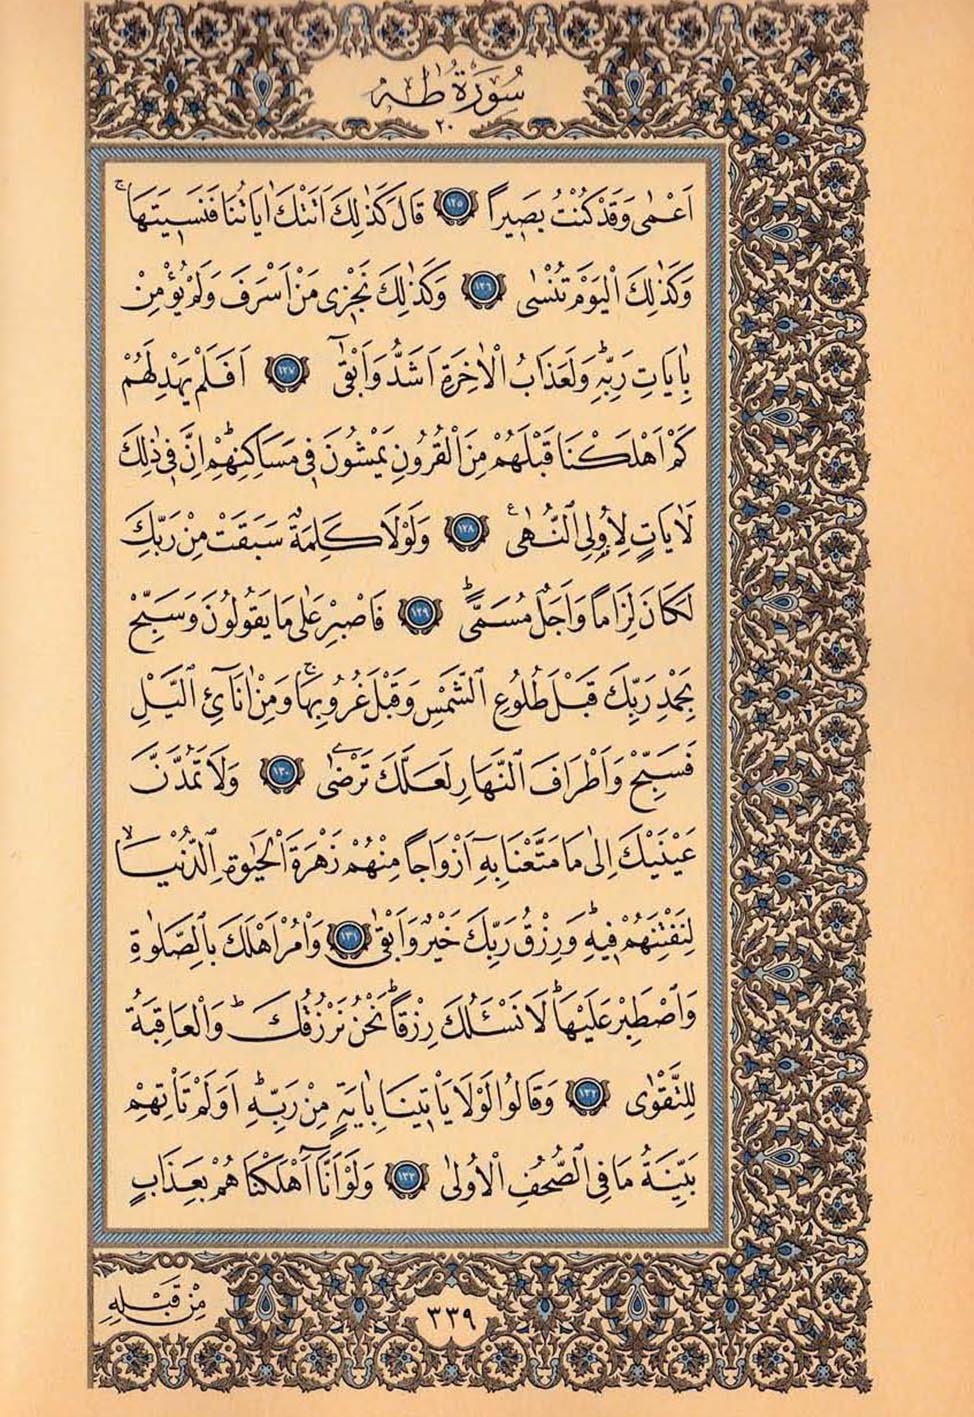 سُورَةُ طٰهٰ
٢٠
اَعْمٰى وَقَدْ كُنْتُ بَصٖيراً ١٢٥ قَالَ كَذٰلِكَ اَتَتْكَ اٰيَاتُنَا فَنَسٖيتَهَاۚ
وَكَذٰلِكَ الْيَوْمَ تُنْسٰى ١٢٦ وَكَذٰلِكَ نَجْزٖى مَنْ اَسْرَفَ وَلَمْ يُؤْمِنْ
بِاٰيَاتِ رَبِّهٖؕ وَلَعَذَابُ الْاٰخِرَةِ اَشَدُّ وَاَبْقٰى ١٢٧ اَفَلَمْ يَهْدِ لَهُمْ
كَمْ اَهْلَكْنَا قَبْلَهُمْ مِنَ الْقُرُونِ يَمْشُونَ فٖى مَسَاكِنِهِمْؕ اِنَّ فٖى ذٰلِكَ
لَاٰيَاتٍ لِاُو۬لِى النُّهٰىࣖ ١٢٨ وَلَوْلَا كَلِمَةٌ سَبَقَتْ مِنْ رَبِّكَ
لَكَانَ لِزَاماً وَاَجَلٌ مُسَمًّىؕ ١٢٩ فَاصْبِرْ عَلٰى مَا يَقُولُونَ وَسَبِّحْ
بِحَمْدِ رَبِّكَ قَبْلَ طُلُوعِ الشَّمْسِ وَقَبْلَ غُرُوبِهَاۚ وَمِنْ اٰنَآئِ الَّيْلِ
فَسَبِّحْ وَاَطْرَافَ النَّهَارِ لَعَلَّكَ تَرْضٰى ١٣٠ وَلَا تَمُدَّنَّ
عَيْنَيْكَ اِلٰى مَا مَتَّعْنَا بِهٖٓ اَزْوَاجاً مِنْهُمْ زَهْرَةَ الْحَيٰوةِ الدُّنْيَاۙ
لِنَفْتِنَهُمْ فٖيهِؕ وَرِزْقُ رَبِّكَ خَيْرٌ وَاَبْقٰى ١٣١ وَاْمُرْ اَهْلَكَ بِالصَّلٰوةِ
وَاصْطَبِرْ عَلَيْهَاؕ لَا نَسْـَٔلُكَ رِزْقاًؕ نَحْنُ نَرْزُقُكَؕ وَالْعَاقِبَةُ
لِلتَّقْوٰى ١٣٢ وَقَالُوا لَوْلَا يَاْتٖينَا بِاٰيَةٍ مِنْ رَبِّهٖؕ اَوَلَمْ تَاْتِهِمْ
بَيِّنَةُ مَا فِى الصُّحُفِ الْاُولٰى ١٣٣ وَلَوْ اَنَّٓا اَهْلَكْنَاهُمْ بِعَذَابٍ
مِنْ قَبْلِهٖ
٣٣٩